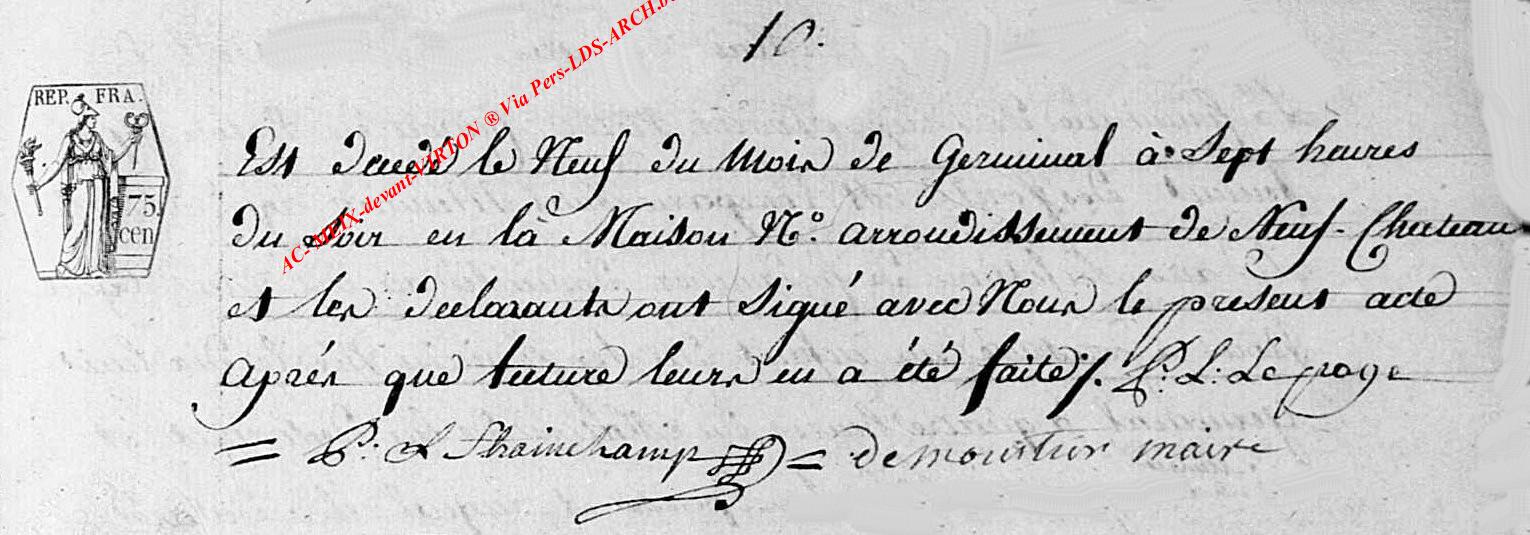 10.
REP. FRA.
75.
cen
AC-MEIX-devant-VIRTON ® Via Pers-LDS-ARCH.
Est decedé le Neuf du Mois de Germinal à Sept heures
du Soir en là Maison N.° arrondissement de Neuf-Chateau
et les declarants ont Signé avec Nous le present acte
Aprés que lecture leurs en a été faite /. P: L: Lepage
= P. L Strainchamp = demoustier maire